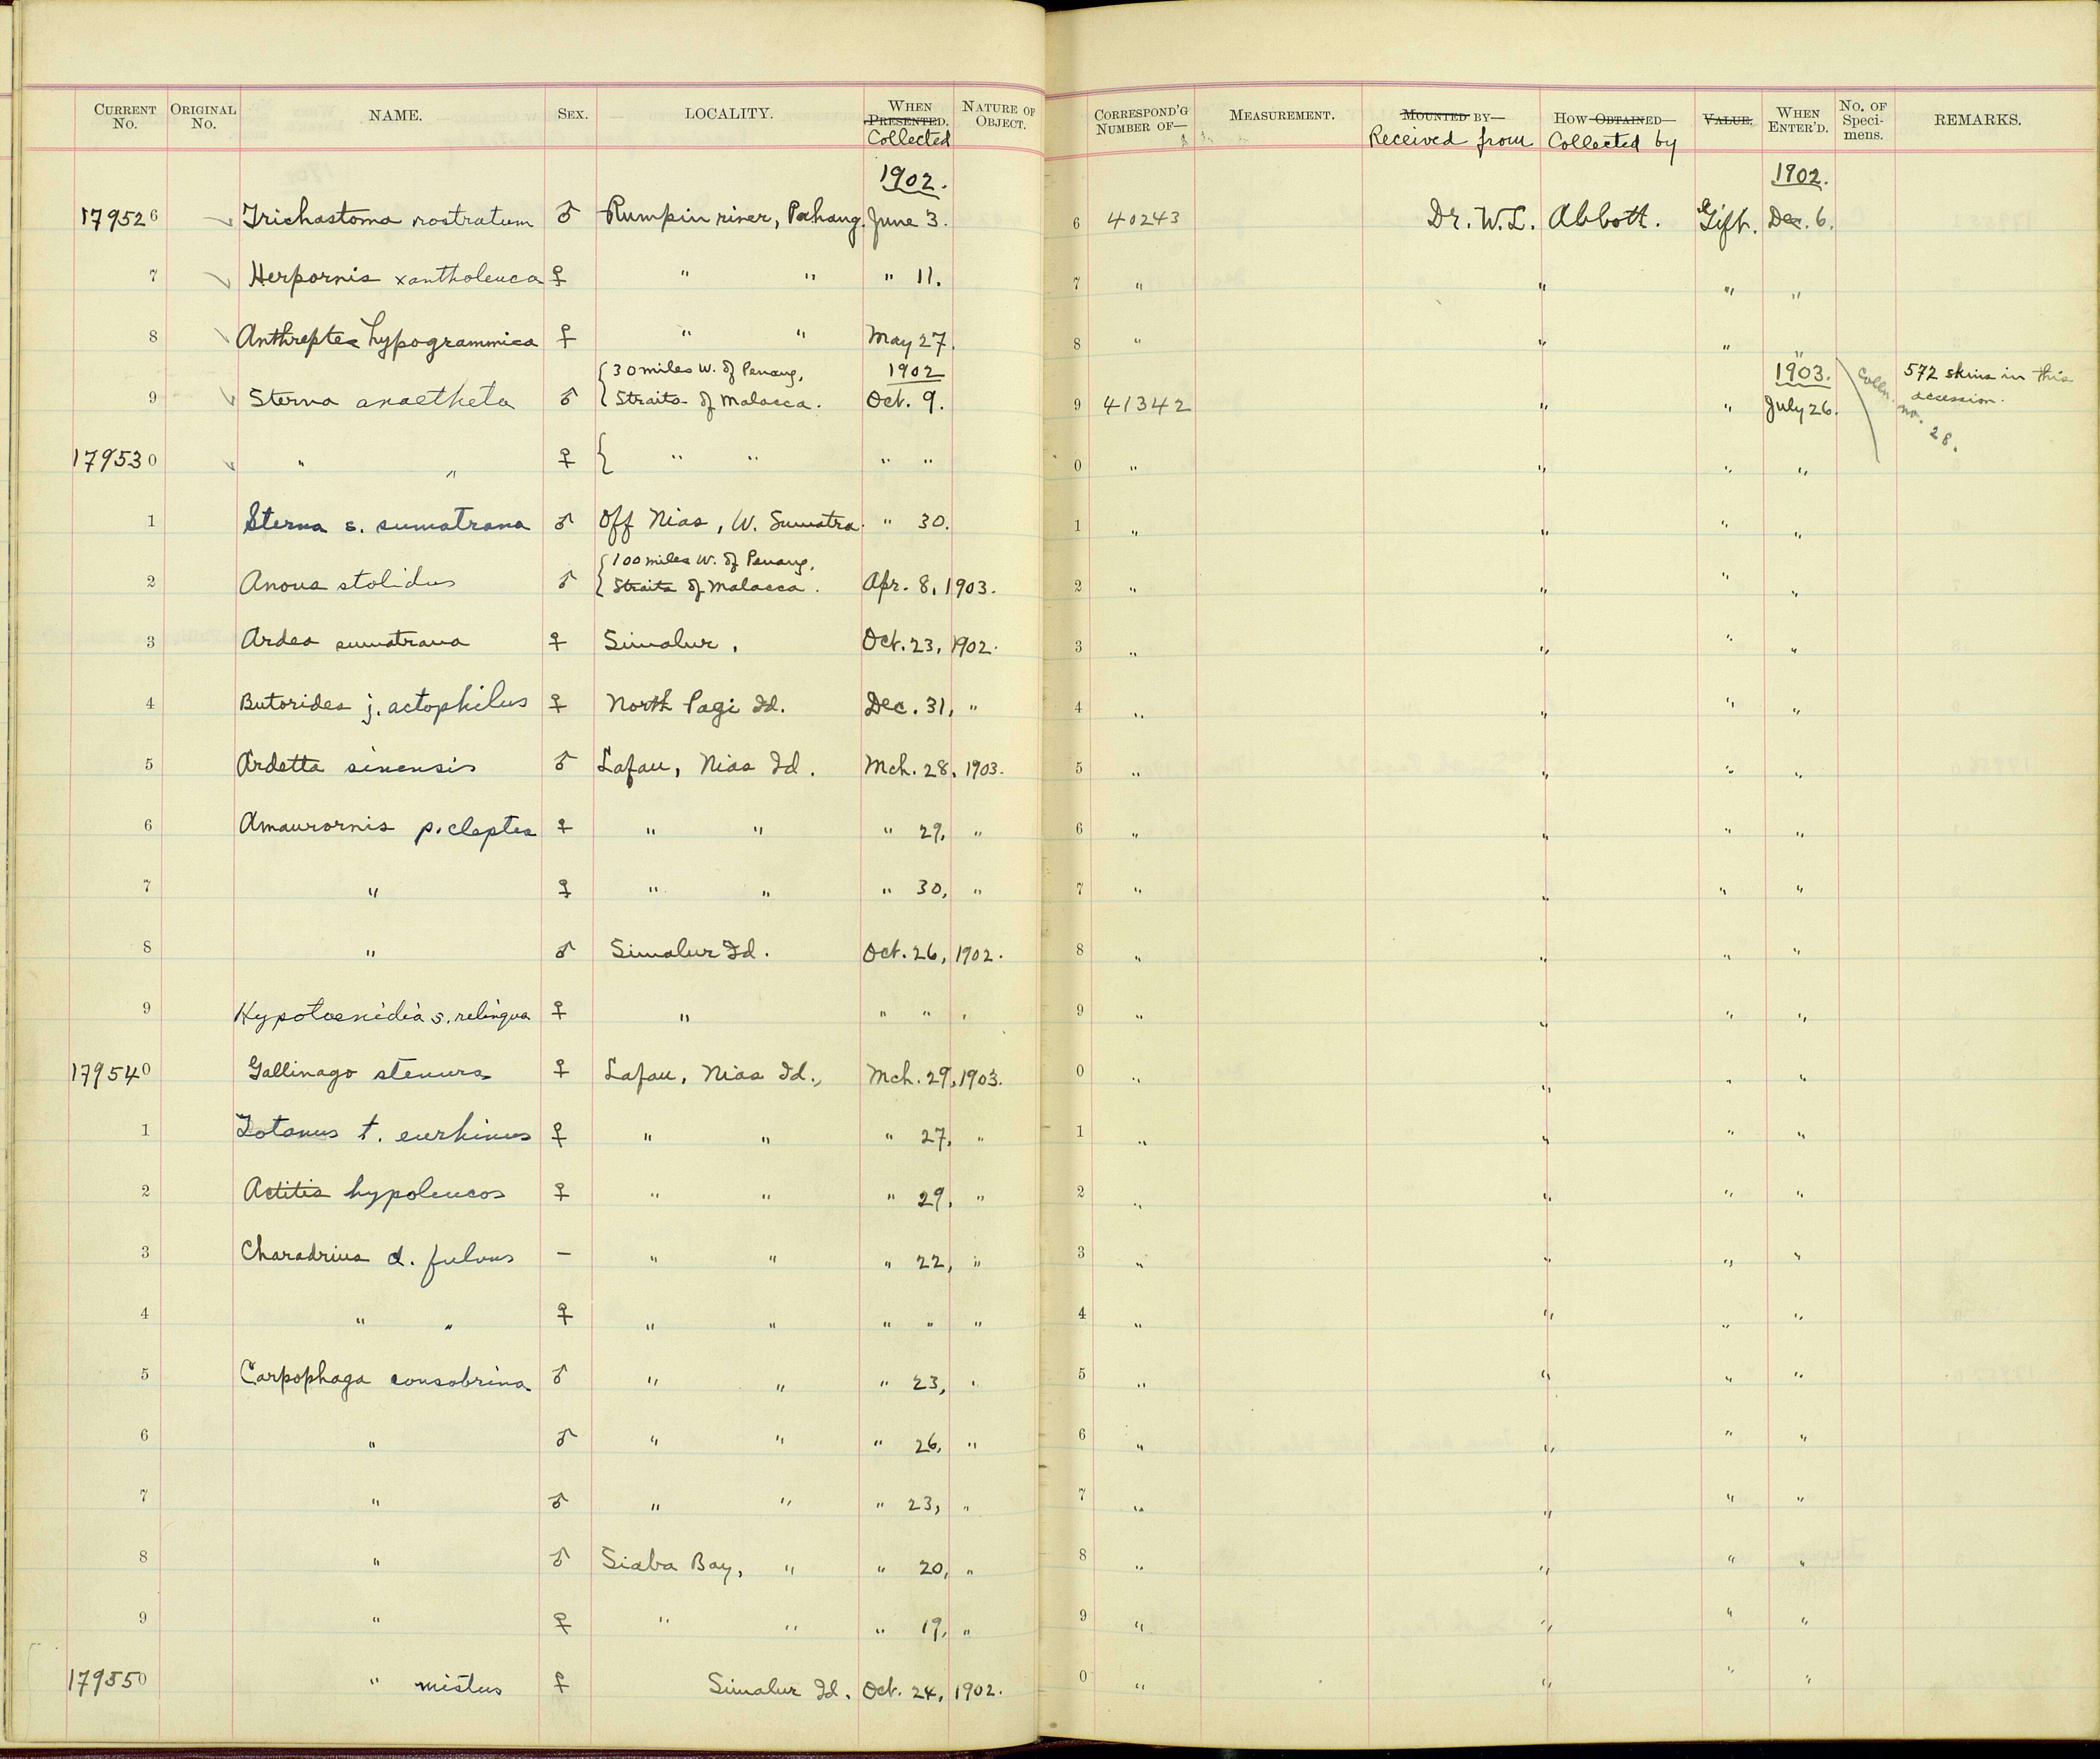 CURRENT No. ORIGINAL No. NAME. SEX. LOCALITY. WHEN PRESENTED. Collected NATURE OF OBJECT. CORRESPOND'G NUMBER OF— MEASUREMENT. MOUNTED BY— Received from HOW OBTAINED— Collected by VALUE. WHEN ENTER'D. No. OF Specimens. REMARKS.
1902. 1902.
179526 Trichastoma rostratum ♂ Rumpin river, Pahang. June 3. 6 40243 Dr. W. L. Abbott. Gift. Dec. 6.
7 Herpornis xantholeuca ♀ " " " 11. 7 " " " "
8 Anthreptes hypogrammica ♀ " " May 27. 8 " " " "
{30 miles W. of Penang, 1902 1903. 572 skins in this
9 Sterna anaetheta ♂ Straits of Malacca. Oct. 9. 9 41342 " " July 26. accession.
Colln. no. 28.
179530 " " ♀ { " " " " 0 " " " "
1 Sterna s. sumatrana ♂ Off Nias, W. Sumatra. " 30. 1 " " " "
{100 miles W. of Penang,
2 Anous stolidus ♂ Straits of Malacca. Apr. 8, 1903. 2 " " " "
3 Ardea sumatrana ♀ Simalur. Oct. 23, 1902. 3 " " " "
4 Butorides j. actophilus ♀ North Pagi Id. Dec. 31, " 4 " " " "
5 Ardetta sinensis ♂ Lafau, Nias Id. Mch. 28, 1903. 5 " " " "
6 Amaurornis p. cleptes ♀ " " " 29, " 6 " " " "
7 " ♀ " " " 30, " 7 " " " "
8 " ♂ Simalur Id. Oct. 26, 1902. 8 " " " "
9 Hypotaenidia s. reliqua ♀ " " " " 9 " " " "
179540 Gallinago stenura ♀ Lafau, Nias Id., Mch. 29, 1903. 0 " " " "
1 Totanus t. eurhinus ♀ " " " 27, " 1 " " " "
2 Actitis hypoleucos ♀ " " " 29, " 2 " " " "
3 Charadrius d. fulvus — " " " 22, " 3 " " " "
4 " " ♀ " " " " " 4 " " " "
5 Carpophaga consobrina ♂ " " " 23, " 5 " " " "
6 " ♂ " " " 26, " 6 " " " "
7 " ♂ " " " 23, " 7 " " " "
8 " ♂ Siaba Bay, " " 20, " 8 " " " "
9 " ♀ " " " 19, " 9 " " " "
179550 " mistus ♀ Simalur Id. Oct. 24, 1902. 0 " " " "